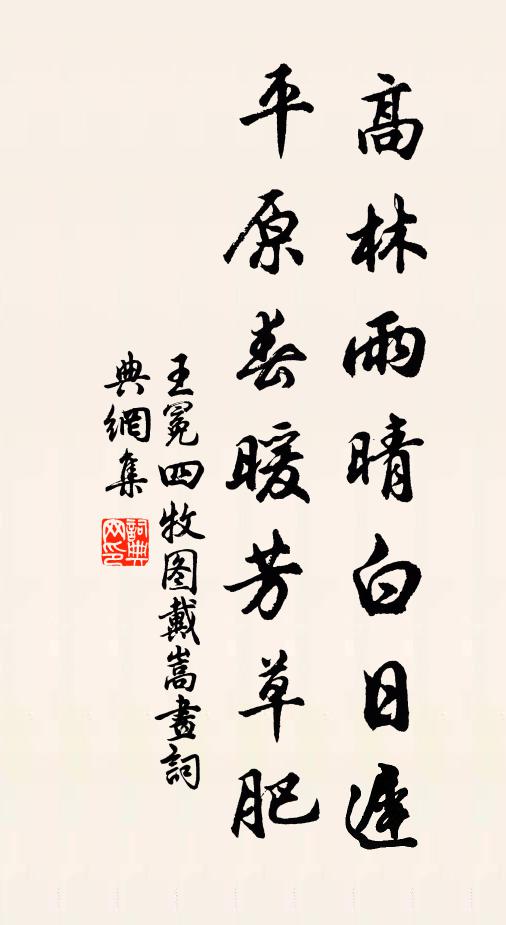 高林雨晴白日遲
平原春暖芳草肥
王冕四牧图戴嵩畫詞
典網集
詞典网印